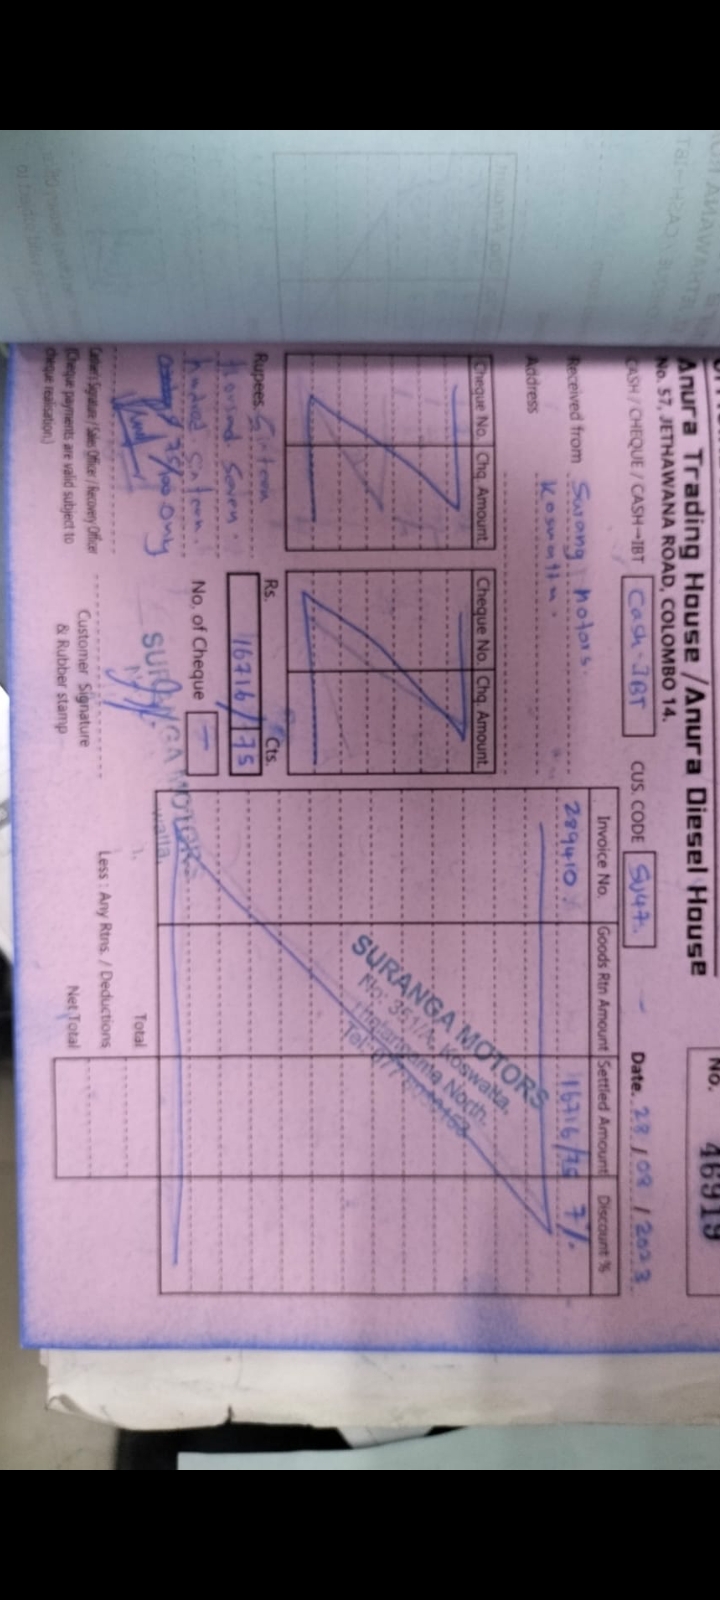 Anura Trading House / Anura Diesel House
No. 57, JETHAWANA ROAD, COLOMBO 14.
No. 46919
CASH / CHEQUE / CASH→IBT Cash IBT CUS. CODE SU47. Date. 28 / 08 / 2023
Received from Surang Motors.
Address
Cheque No. Chq. Amount.
Cheque No. Chq. Amount.
Rupees. Sixteen
Rs. Cts.
16716/ 75
No. of Cheque
75/100 only
Cashier's Signature / Sales Officer / Recovery Officer
(Cheque payments are valid subject to
cheque realisation.)
Customer Signature
& Rubber stamp
SURANGA MOTORS
Invoice No. Goods Rtn Amount Settled Amount Discount %
289410. 16716/75 7%
SURANGA MOTORS
No: 351/A, Koswatta,
North.
Total
Less : Any Rtns. / Deductions
Net Total